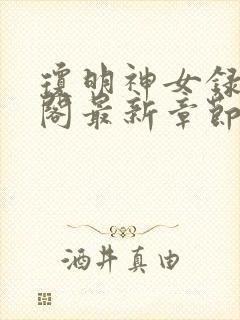 瓊明神女録
閣最新章節
酒井真由